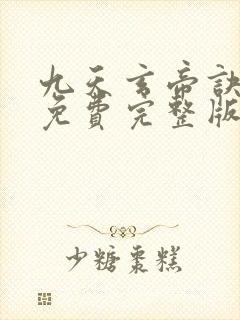 九天玄帝訣
免費完整版
少糖棗糕